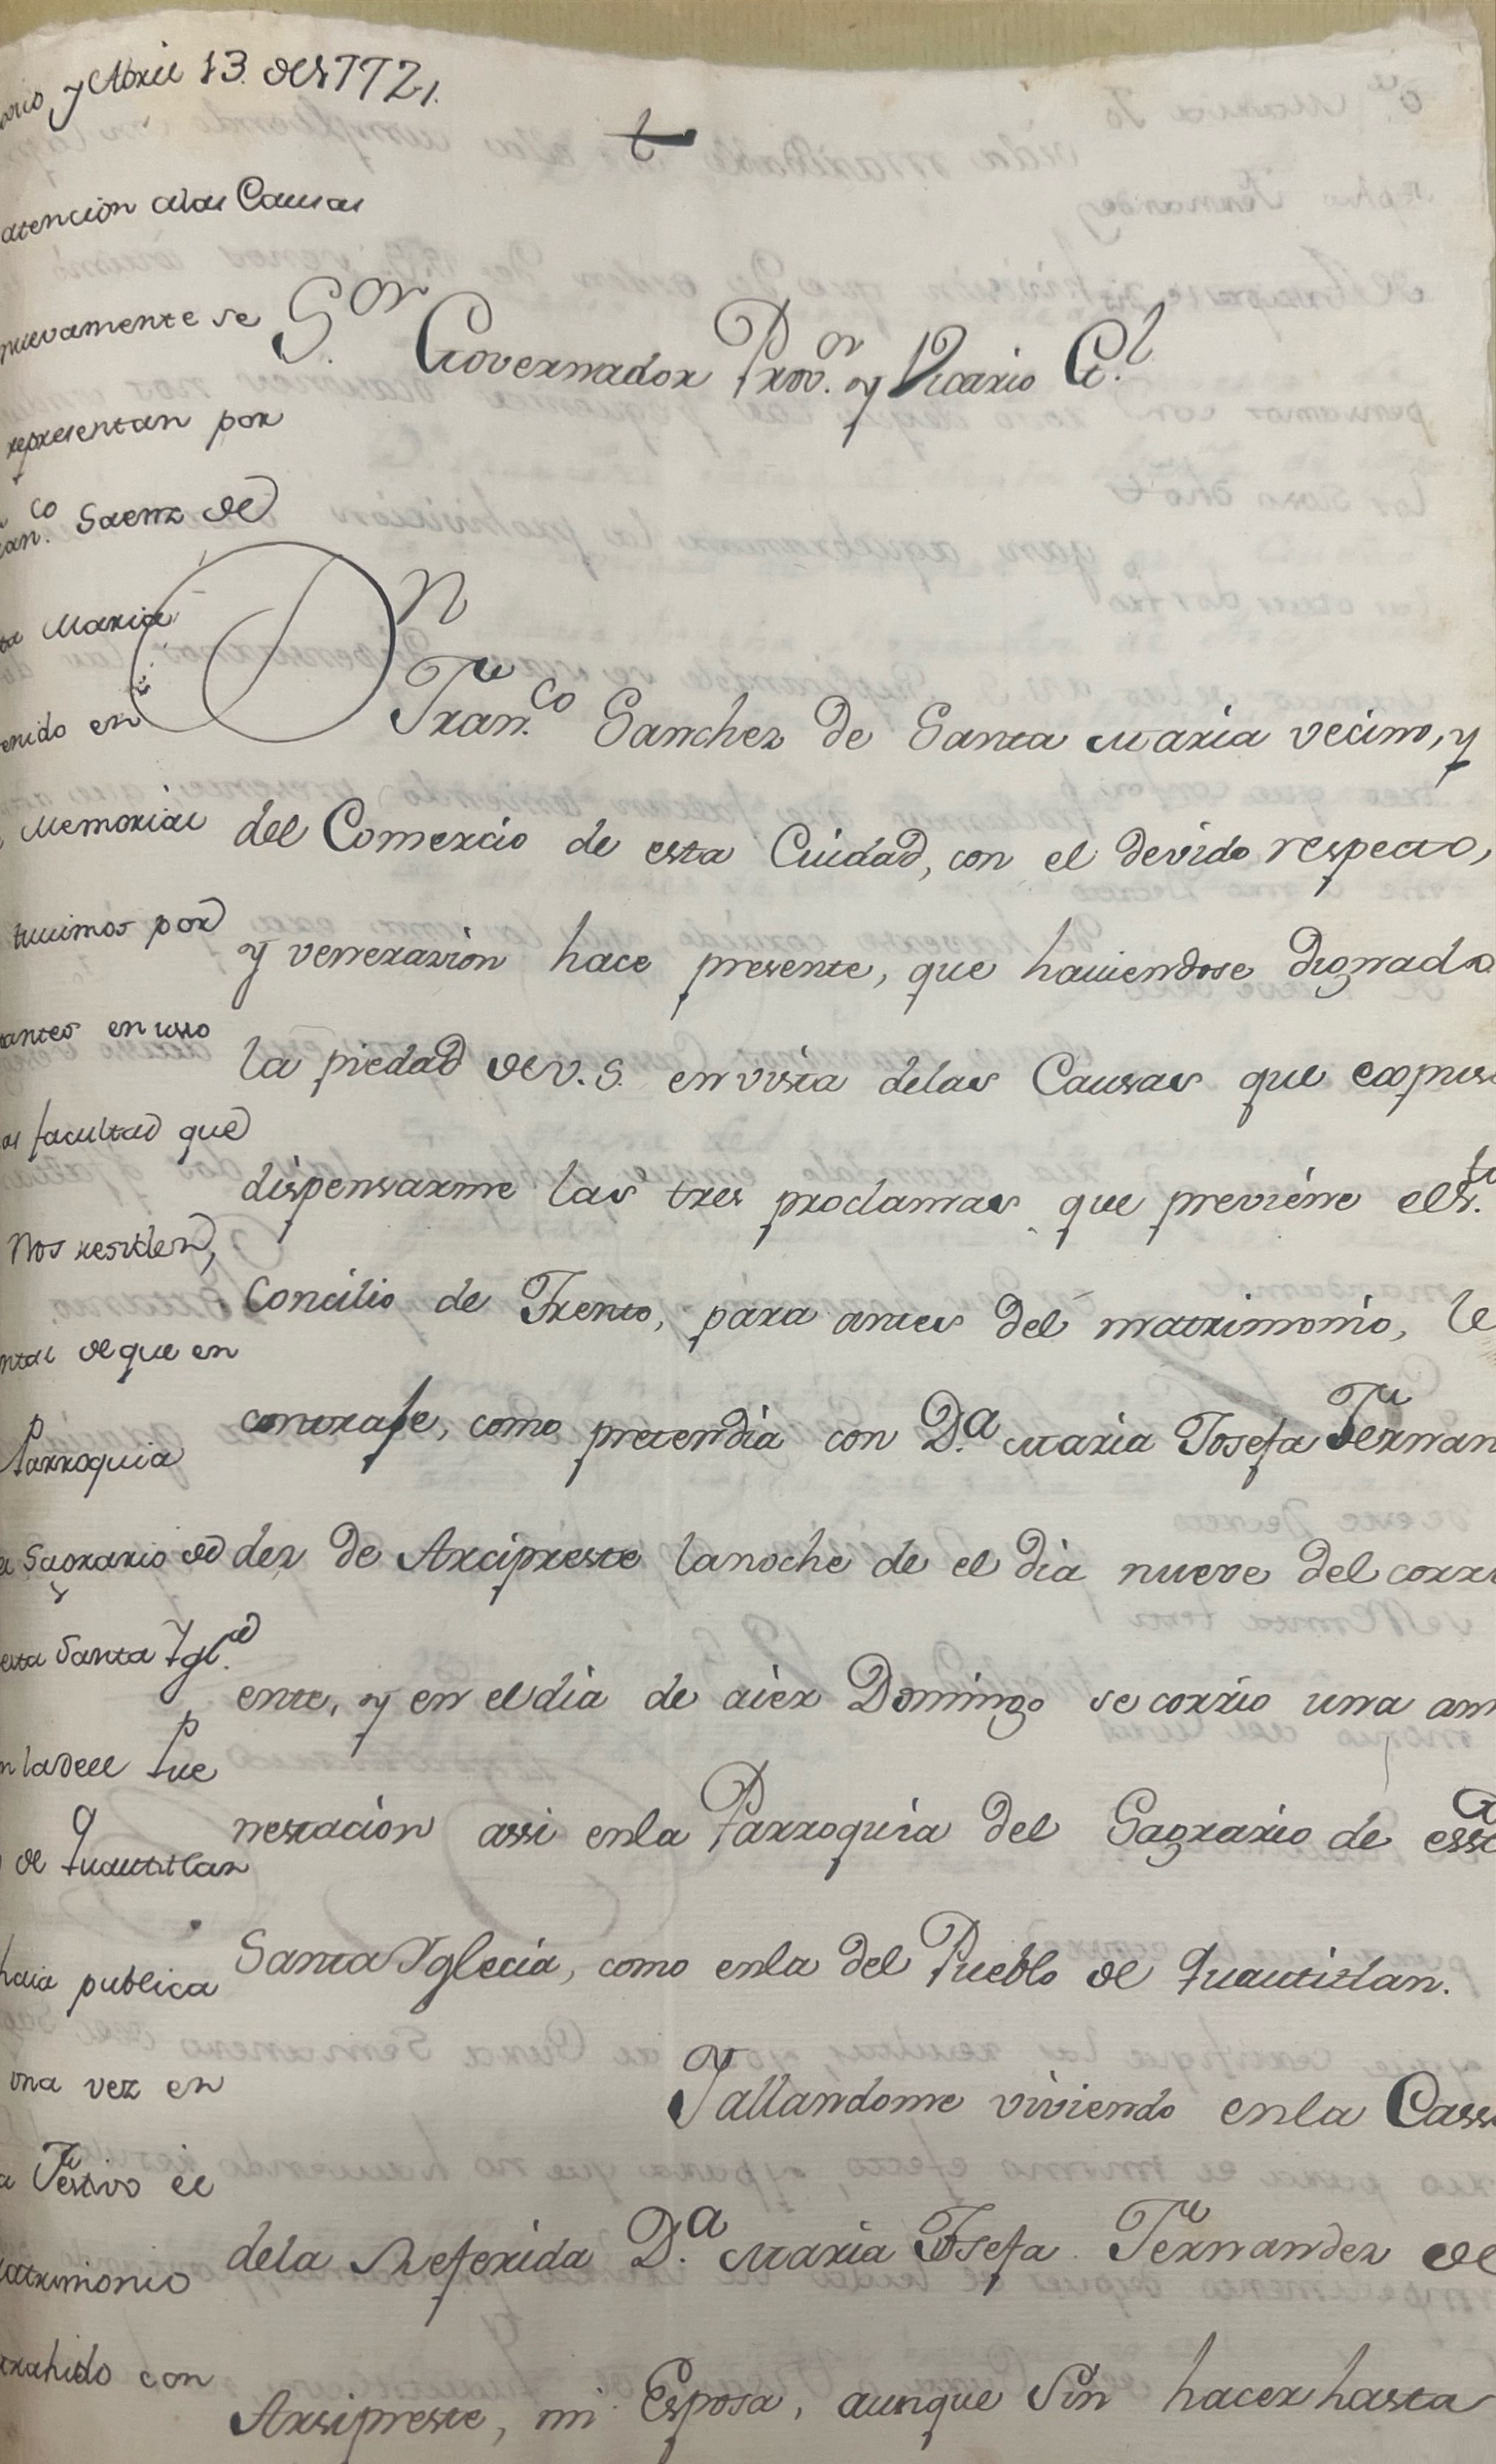 y Abril 13. de 1772,,
atencion alas Causas
nuevamente se
representan por
Saenz de
Maria
en
Memorial
tuuimos por
en usso
facultad que
Nos residen,
de que en
Parroquia
Sagrario de
esta Santa Igl.ᵃ
Pue
de Quautitlan
haia publica
una vez en
Festivo el
con
S.ᵒʳ Governador Prov.ᵒʳ y Vicario G.ˡ
Dⁿ
Fran.ᶜᵒ Sanchez de Santa Maria vecino, y
del Comercio de esta Ciudad, con el devido respecto,
y venerazion hace presente, que hauiendose Dignado
la piedad de V.S. en vista delas Causas que expus
dispensarme las tres proclamas que previéne el S.ᵗᵒ
Concilio de Trento, para antes del matrimonio, le
contraje, como pretendia con D.ᵃ Maria Josefa Fernan
dez de Arcipreste lanoche de el dia nueve del corri
ente, y en el dia de aier Domingo se corrio una am
nestacion assi enla Parroquia del Sagrario de esta
Santa Iglecia, como enla del Pueblo de Quautitlan.
Hallandome viviendo enla Cass
dela Referida D.ᵃ Maria Josefa Fernandez de
Arsipreste, mi Esposa, aunque Sin hacer hasta